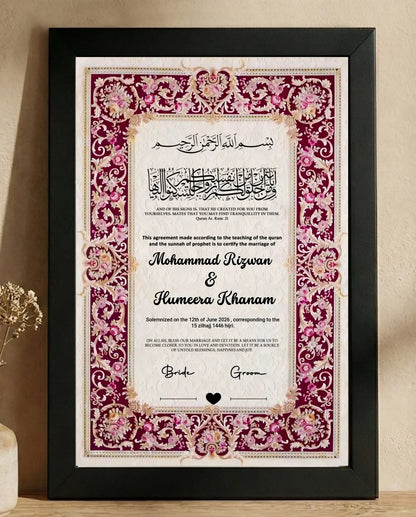 بسم الله الرحمن الرحيم
AND OF HIS SIGNS IS. THAT HE CREATED FOR YOU FROM
YOURSELVES. MATES THAT YOU MAY FIND TRANQUILITY IN THEM.
Quran Ar. Rum: 21
This agreement made according to the teaching of the quran
and the sunnah of prophet is to certify the marriage of
Mohammad Rizwan
&
Humeera Khanam
Solemnized on the 12th of June 2026 , corresponding to the
15 zilhajj 1446 hijri.
OH ALLAH, BLESS OUR MARRIAGE AND LET IT BE A MEANS FOR US TO
BECOME CLOSER TO YOU IN LOVE AND DEVOTION. LET IT BE A SOURCE
OF UNTOLD BLESSINGS, HAPPINES AND JOY.
Bride Groom